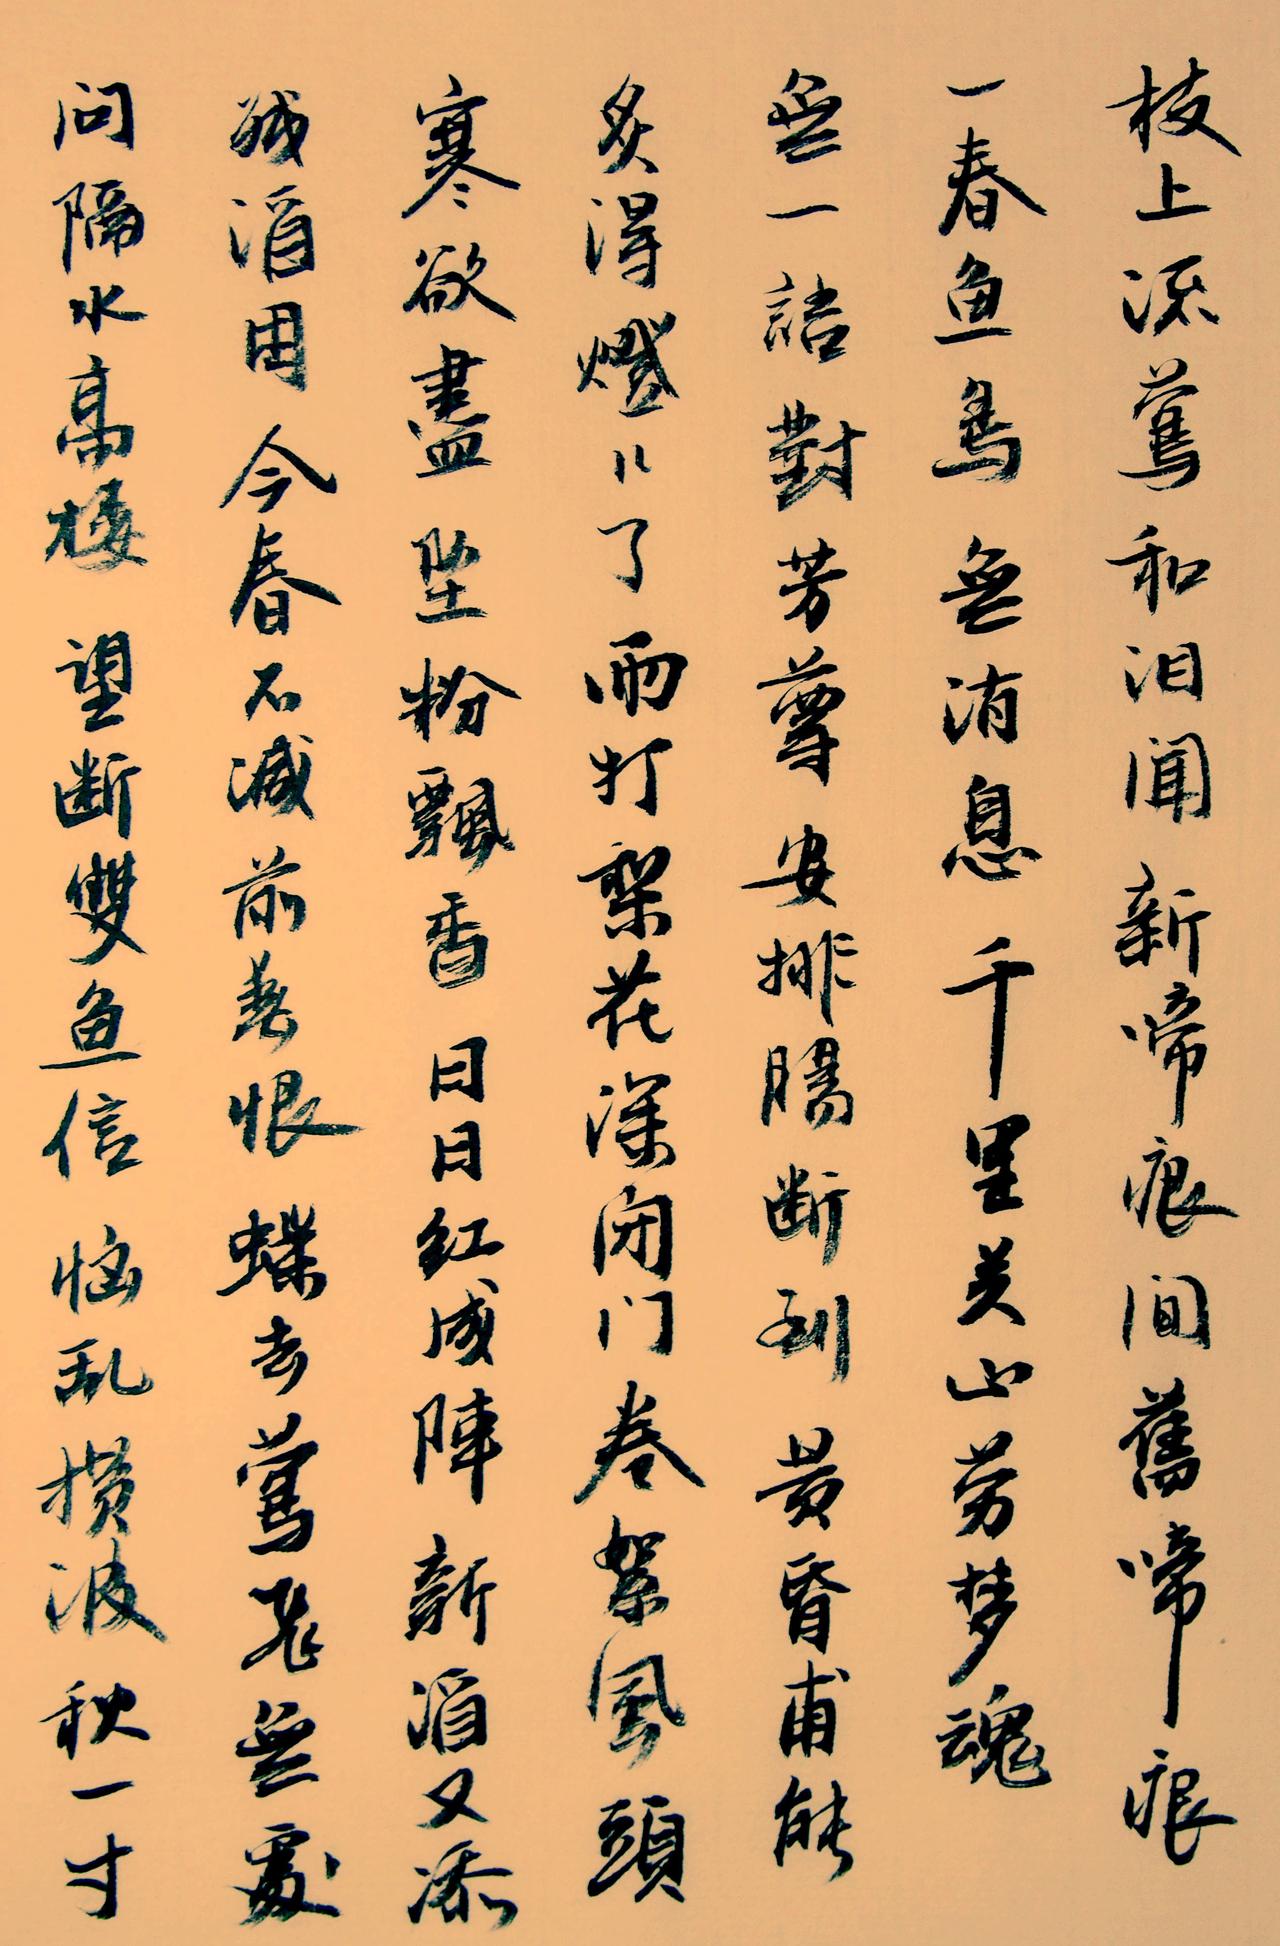 枝上流鶯和泪闻新啼痕间舊啼痕
一春鱼鸟無消息千里关山劳梦魂
無一語對芳尊安排腸断到黄昏甫能
炙得燈〻了雨打梨花深闭门卷絮風頭
寒欲盡坠粉飄香日日红成陣新酒又添
残酒困今春不减前春恨蝶去鶯飛無處
问隔水高楼望断雙鱼信恼乱横波秋一寸